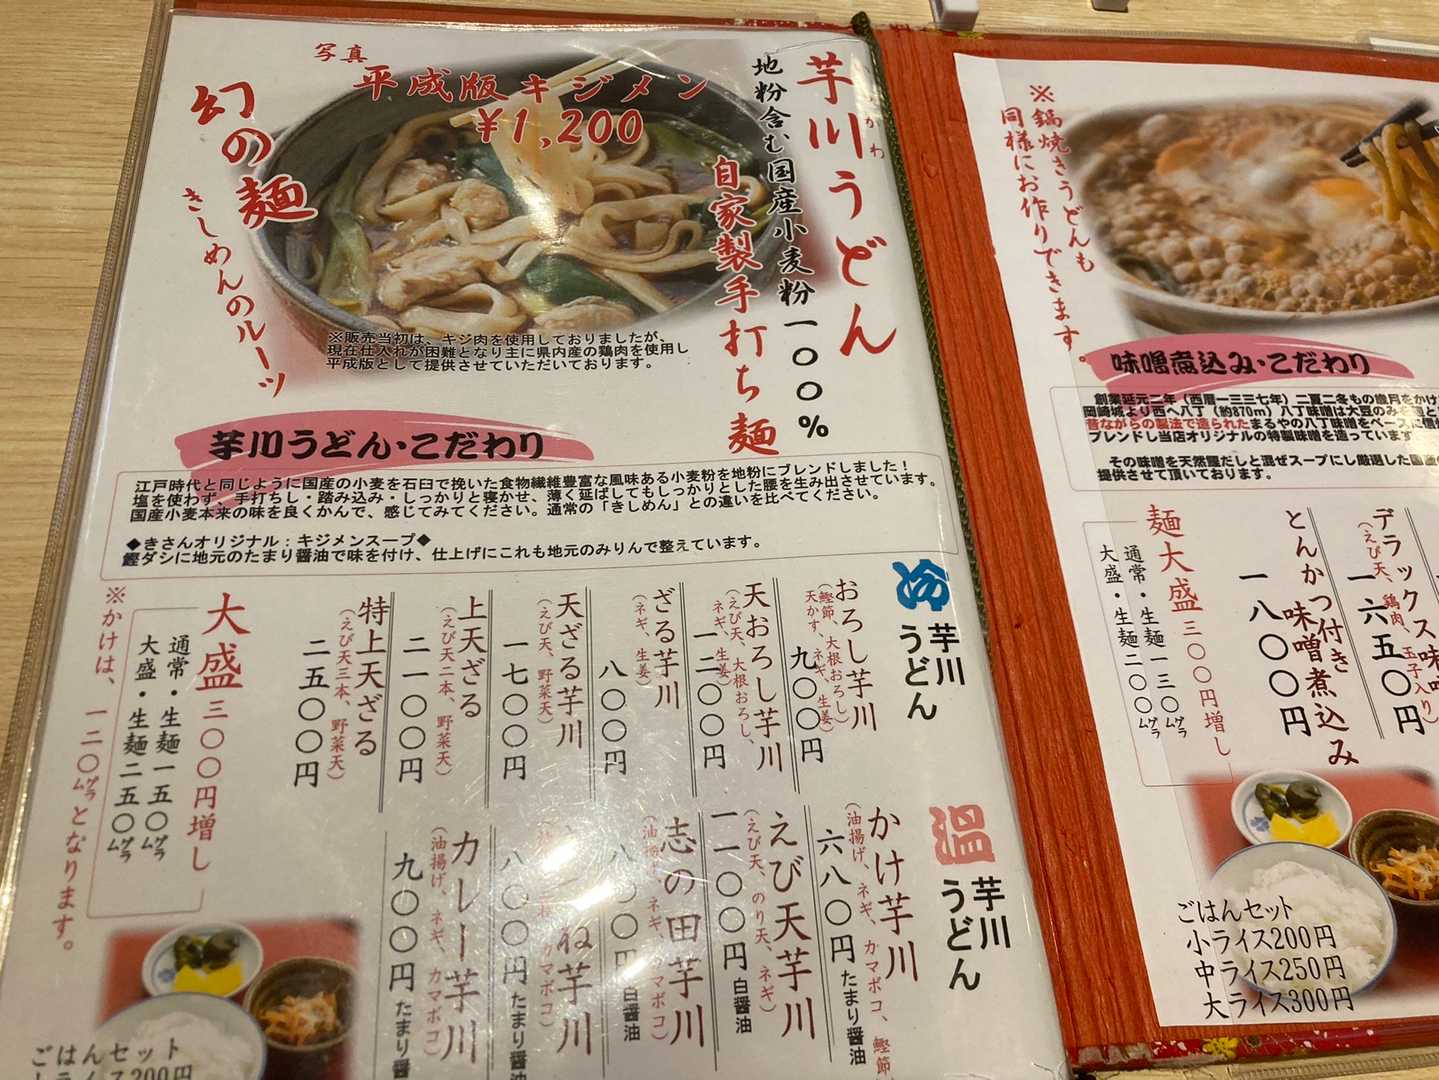 写真
平成版キジメン
¥1,200
幻の麺
きしめんのルーツ
芋川うどん
かわ
地粉含む国産小麦粉一〇〇%
自家製手打ち麺
※販売当初は、キジ肉を使用しておりましたが、
現在仕入れが困難となり主に県内産の鶏肉を使用し
平成版として提供させていただいております。
芋川うどん・こだわり
江戸時代と同じように国産の小麦を石臼で挽いた食物繊維豊富な風味ある小麦粉を地粉にブレンドしました！
塩を使わず、手打ちし・踏み込み・しっかりと寝かせ、薄く延ばしてもしっかりとした腰を生み出させています。
国産小麦本来の味を良くかんで、感じてみてください。通常の「きしめん」との違いを比べてください。
◆きさんオリジナル：キジメンスープ◆
鰹ダシに地元のたまり醤油で味を付け、仕上げにこれも地元のみりんで整えています。
冷 芋川うどん
おろし芋川
(鰹節、大根おろし、
天かす、ネギ、生姜)
九〇〇円
天おろし芋川
(えび天、大根おろし、
ネギ、生姜)
一二〇〇円
ざる芋川
(ネギ、生姜)
八〇〇円
天ざる芋川
(えび天、野菜天)
一七〇〇円
上天ざる
(えび天二本、野菜天)
二一〇〇円
特上天ざる
(えび天三本、野菜天)
二五〇〇円
大盛三〇〇円増し
通常・生麺一五〇グラム
大盛・生麺二五〇グラム
※かけは、一二〇グラムとなります。
温 芋川うどん
かけ芋川
(油揚げ、ネギ、カマボコ、鰹節
六八〇円 たまり醤油
えび天芋川
(えび天、のり天、ネギ)
一一〇〇円 白醤油
志の田芋川
(油揚げ、ネギ、カマボコ)
八〇〇円 白醤油
ね芋川
カマボコ)
八〇〇円 たまり醤油
カレー芋川
(油揚げ、ネギ、カマボコ)
九〇〇円 たまり醤
ごはんセット
小ライス200円
※鍋焼きうどんも
同様にお作りできます。
味噌煮込み・こだわり
創業延元二年（西暦一三三七年）二夏二冬もの歳月をかけ
岡崎城より西へ八丁（約870m）八丁味噌は大豆のみを
昔ながらの製法で造られたまるやの八丁味噌をベースに
ブレンドし当店オリジナルの特製味噌を造っています
その味噌を天然鰹だしと混ぜスープにし厳選した
提供させて頂いております。
デラックス味
(えび天、鶏肉、玉子入り)
一六五〇円
とんかつ付き味噌煮込み
一八〇〇円
麺大盛三〇〇円増し
通常・生麺一三〇グラム
大盛・生麺二〇〇グラム
ごはんセット
小ライス200円
中ライス250円
大ライス300円